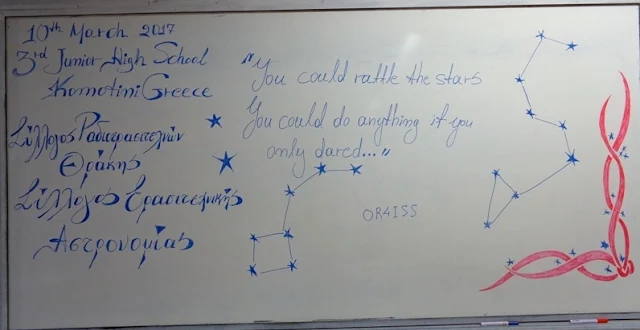 10th March 2017
3rd Junior High School
Komotini Greece
Σύλλογος Ραδιοερασιτεχνών
Θράκης
Σύλλογος Ερασιτεχνικής
Αστρονομίας
"You could rattle the stars
You could do anything if you
only dared..."
OR4ISS